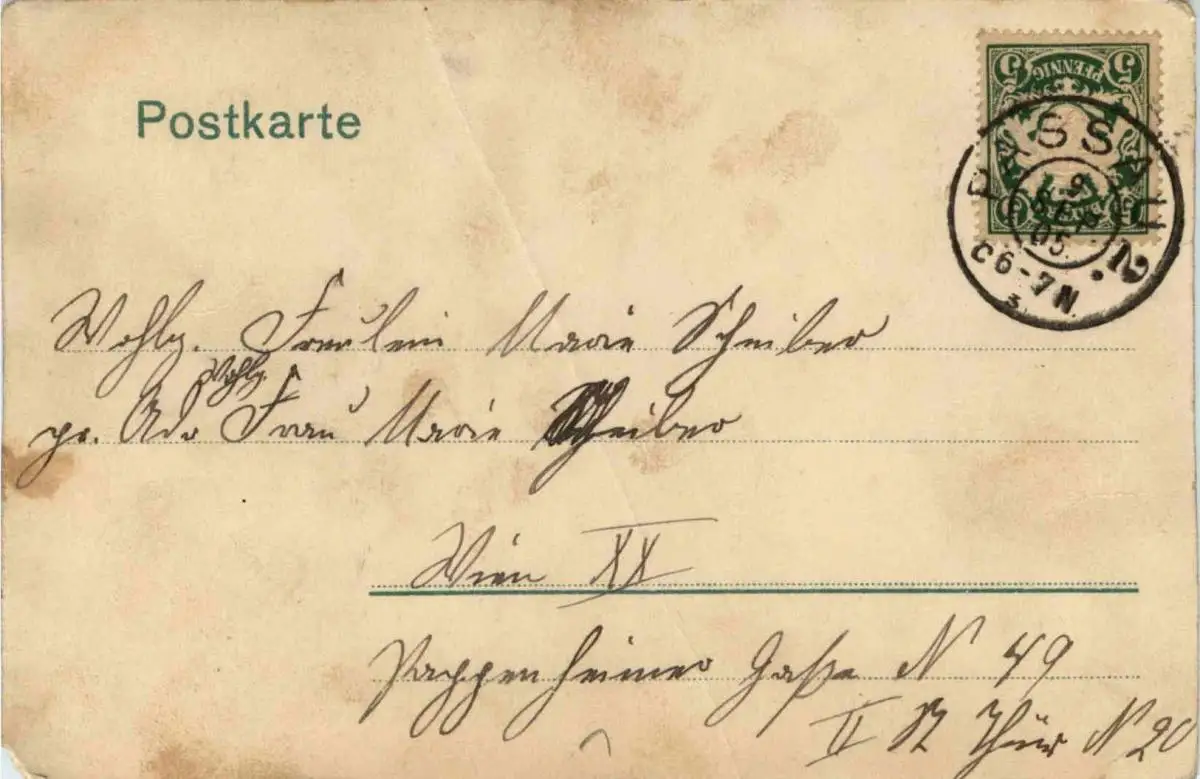 Postkarte
5 PFENNIG 5
PASSAU 2.
9
SEP
05.
C 6-7 N.
3.
Wohlg. Fräulein Marie Scheiber
Wohlg.
pr. Adr Frau Marie Scheiber
Wien XX
Pappenheimer Gaße N 49
II St Thür N 20